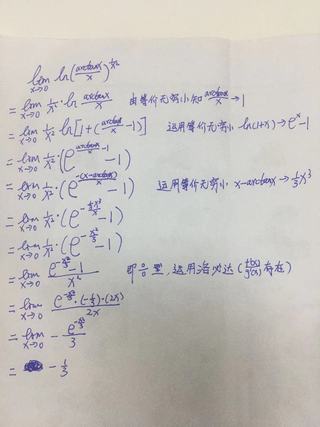 lim x→0 ln(arctanx/x)^(1/x²)
= lim x→0 1/x² · ln arctanx/x 由等价无穷小知 arctanx/x → 1
= lim x→0 1/x² ln[1+(arctanx/x -1)] 运用等价无穷小 ln(1+x) → e^x -1
= lim x→0 1/x² · (e^(arctanx/x -1) -1)
= lim x→0 1/x² · (e^(-(x-arctanx)/x) -1) 运用等价无穷小 x-arctanx → 1/3 x³
= lim x→0 1/x² · (e^(-(1/3 x³)/x) -1)
= lim x→0 1/x² · (e^(-x²/3) -1)
= lim x→0 (e^(-x²/3) -1)/x² 即 0/0 型, 运用洛必达 (f'(x)/g'(x) 存在)
= lim x→0 (e^(-x²/3) · (-1/3) · (2x))/2x
= lim x→0 - e^(-x²/3)/3
= -1/3